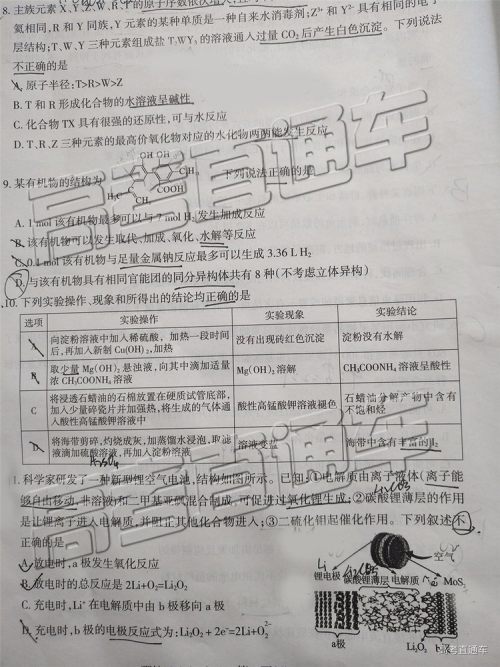 8. 主族元素 X、Y、Z、W、R、T 的原子序数依次增大,
氮相同, R 和 Y 同族, Y 元素的某种单质是一种自来水消毒剂; Z³⁺ 和 Y²⁻ 具有相同的电子
层结构; T、W、Y 三种元素组成盐 T₂WY₃ 的溶液通入过量 CO₂ 后产生白色沉淀。下列说法
不正确的是
A. 原子半径: T>R>W>Z
B. T 和 R 形成化合物的水溶液呈碱性
C. 化合物 TX 具有很强的还原性, 可与水反应
D. T、R、Z 三种元素的最高价氧化物对应的水化物两两能发生反应
9. 某有机物的结构为
OH OH
CH₃
H₃C
COOH
下列说法正确的是
A. 1 mol 该有机物最多可以与 7 mol H₂ 发生加成反应
B. 该有机物可以发生取代、加成、氧化、水解等反应
C. 0.1 mol 该有机物与足量金属钠反应最多可以生成 3.36 L H₂
D. 与该有机物具有相同官能团的同分异构体共有 8 种(不考虑立体异构)
10. 下列实验操作、现象和所得出的结论均正确的是
选项 实验操作 实验现象 实验结论
A 向淀粉溶液中加入稀硫酸,加热一段时间
后,再加入新制 Cu(OH)₂,加热 没有出现砖红色沉淀 淀粉没有水解
B 取少量 Mg(OH)₂ 悬浊液,向其中滴加适量
浓 CH₃COONH₄ 溶液 Mg(OH)₂ 溶解 CH₃COONH₄ 溶液呈酸性
C 将浸透石蜡油的石棉放置在硬质试管底部,
加入少量碎瓷片并加强热,将生成的气体通
入酸性高锰酸钾溶液中 酸性高锰酸钾溶液褪色 石蜡油分解产物中含有
不饱和烃
D 将海带剪碎,灼烧成灰,加蒸馏水浸泡,取滤
液滴加硫酸溶液,再加入淀粉溶液 溶液变蓝 海带中含有丰富的 I₂
1. 科学家研发了一种新型锂空气电池,结构如图所示。已知:①电解质由离子液体(离子能
够自由移动,非溶液)和二甲基亚砜混合制成,可促进过氧化锂生成;②碳酸锂薄层的作用
是让锂离子进入电解质,并阻止其他化合物进入;③二硫化钼起催化作用。下列叙述不
正确的是
A. 放电时,a 极发生氧化反应
B. 放电时的总反应是 2Li+O₂=Li₂O₂
C. 充电时,Li⁺ 在电解质中由 b 极移向 a 极
D. 充电时,b 极的电极反应式为: Li₂O₂ + 2e⁻=2Li+O₂²⁻
空气
锂电极 碳酸锂薄层 电解质 MoS₂
a极 Li₂O₂ b极
高考直通车
高考直通车
高考直通车
高考直通车